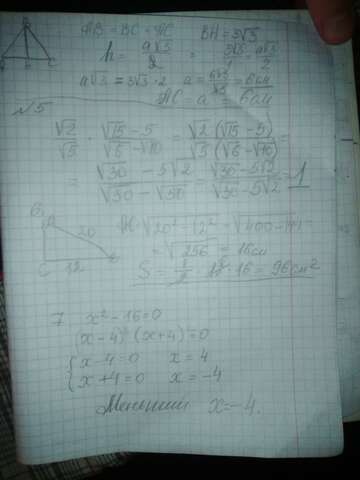 AB = BC = AC BH = 3√3
h = a√3/2 = 3√3/1 = a√3/2
a√3 = 3√3·2 a = 6√3/√3 = 6см
AC = a = 6см
№5
√2/√5 · √15-5/√6-√10 = √2(√15-5)/√5(√6-√10) =
= √30-5√2/√30-√50 = √30-5√2/√30-5√2 = 1
B
20 √20²-12² = √400-144 =
= √256 = 16см
C 12
S = 1/2 · 12 · 16 = 96см²
7 x²-16=0
(x-4)(x+4)=0
x-4=0 x=4
x+4=0 x=-4
Меньший x=-4.